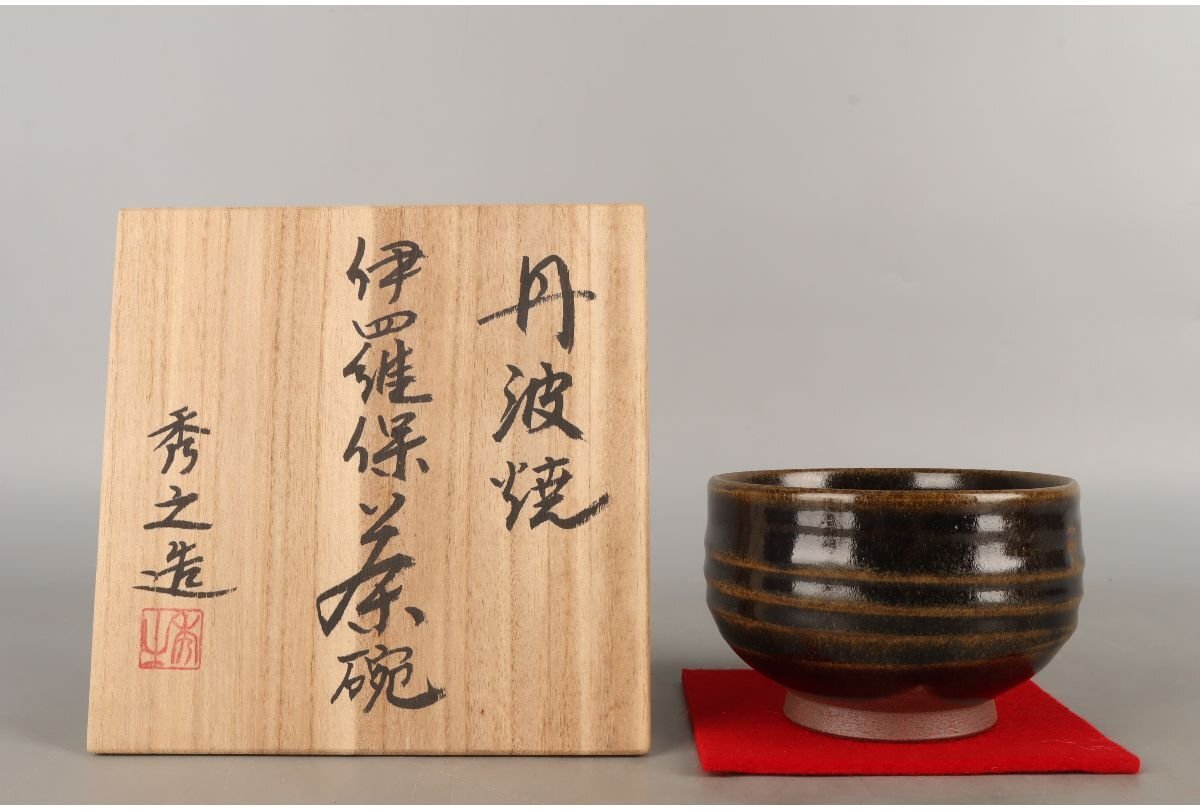 丹波焼
伊羅保茶碗
秀之造
秀之